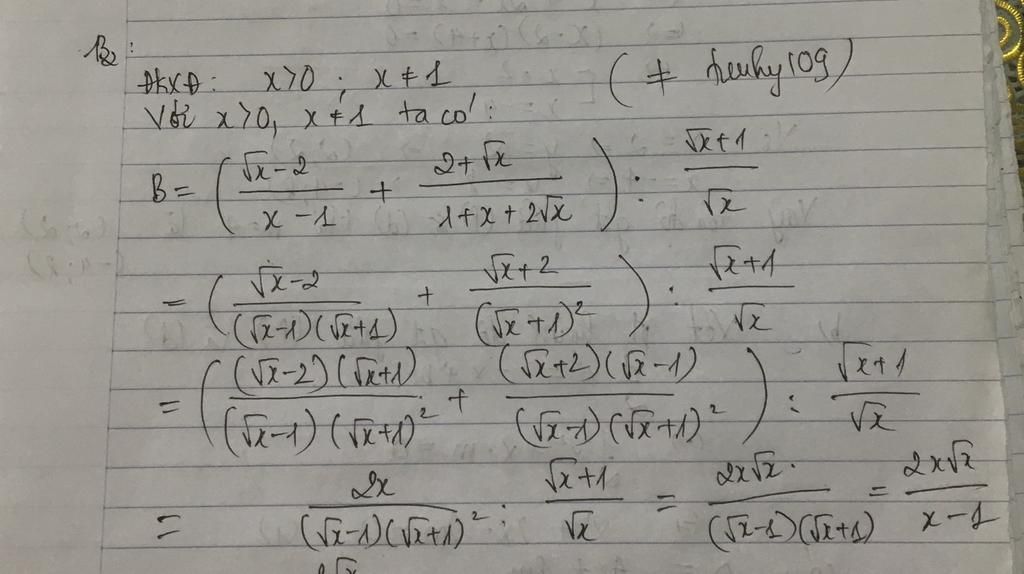 B2:
ĐKXĐ: x>0; x≠1 (≠
Với x>0, x≠1 ta có:
B = ( (√x-2)/(x-1) + (2+√x)/(1+x+2√x) ) : (√x+1)/√x
= ( (√x-2)/((√x-1)(√x+1)) + (√x+2)/(√x+1)² ) : (√x+1)/√x
= ( ((√x-2)(√x+1))/((√x-1)(√x+1)²) + ((√x+2)(√x-1))/((√x-1)(√x+1)²) ) : (√x+1)/√x
= 2x/((√x-1)(√x+1)²) : (√x+1)/√x = 2x√x/((√x-1)(√x+1)) = 2x√x/(x-1)